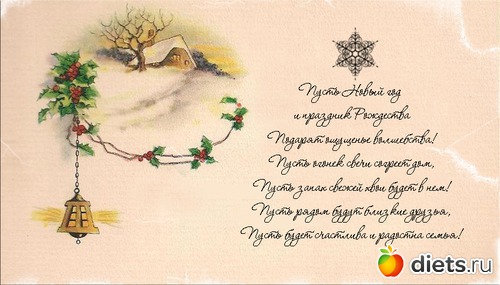 Пусть Новый год
и праздник Рождества
Подарят ощущенье волшебства!
Пусть огонек свечи согреет дом,
Пусть запах свежей хвои будет в нем!
Пусть рядом будут близкие друзья,
Пусть будет счастлива и радостна семья!
diets.ru